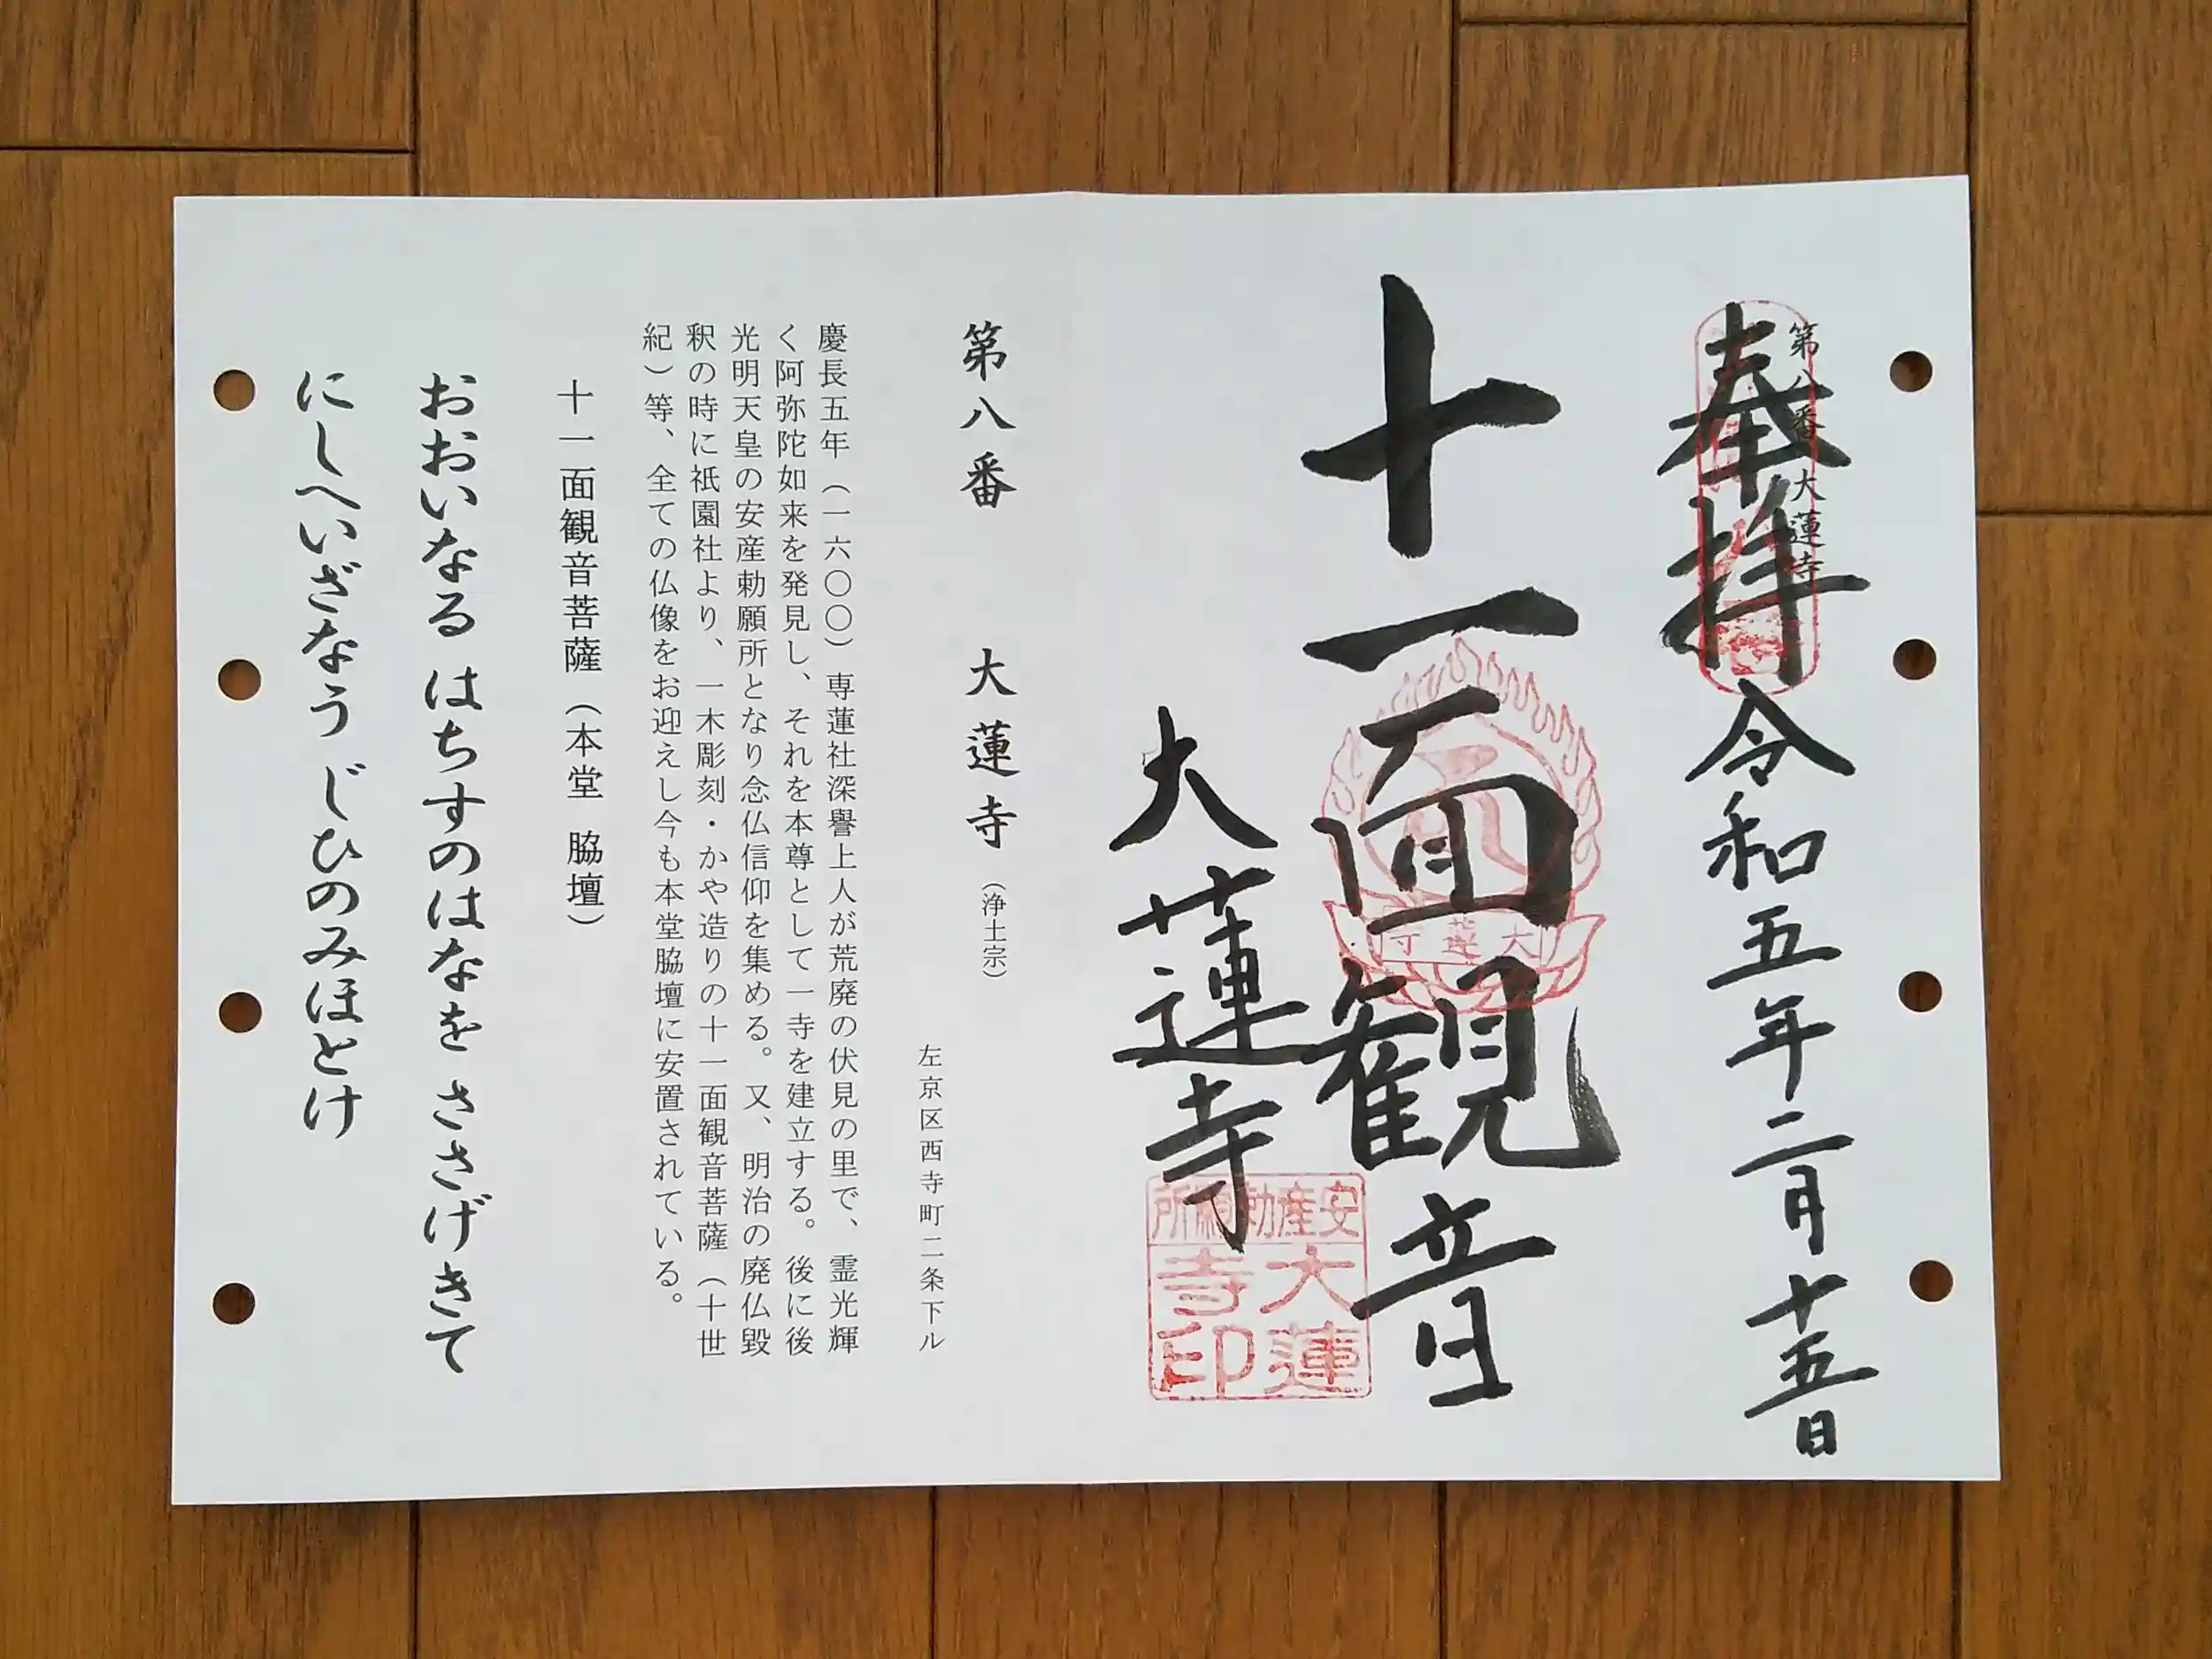 第八番 大蓮寺
奉拝 令和五年二月十五日
十一面観音
大蓮寺
大蓮寺
安産勅願所
大蓮
寺印
第八番 大蓮寺（浄土宗）
左京区西寺町二条下ル
慶長五年（一六〇〇）専蓮社深譽上人が荒廃の伏見の里で、霊光輝
く阿弥陀如来を発見し、それを本尊として一寺を建立する。後に後
光明天皇の安産勅願所となり念仏信仰を集める。又、明治の廃仏毀
釈の時に祇園社より、一木彫刻・かや造りの十一面観音菩薩（十世
紀）等、全ての仏像をお迎えし今も本堂脇壇に安置されている。
十一面観音菩薩（本堂 脇壇）
おおいなる はちすのはなを ささげきて
にしへいざなう じひのみほとけ